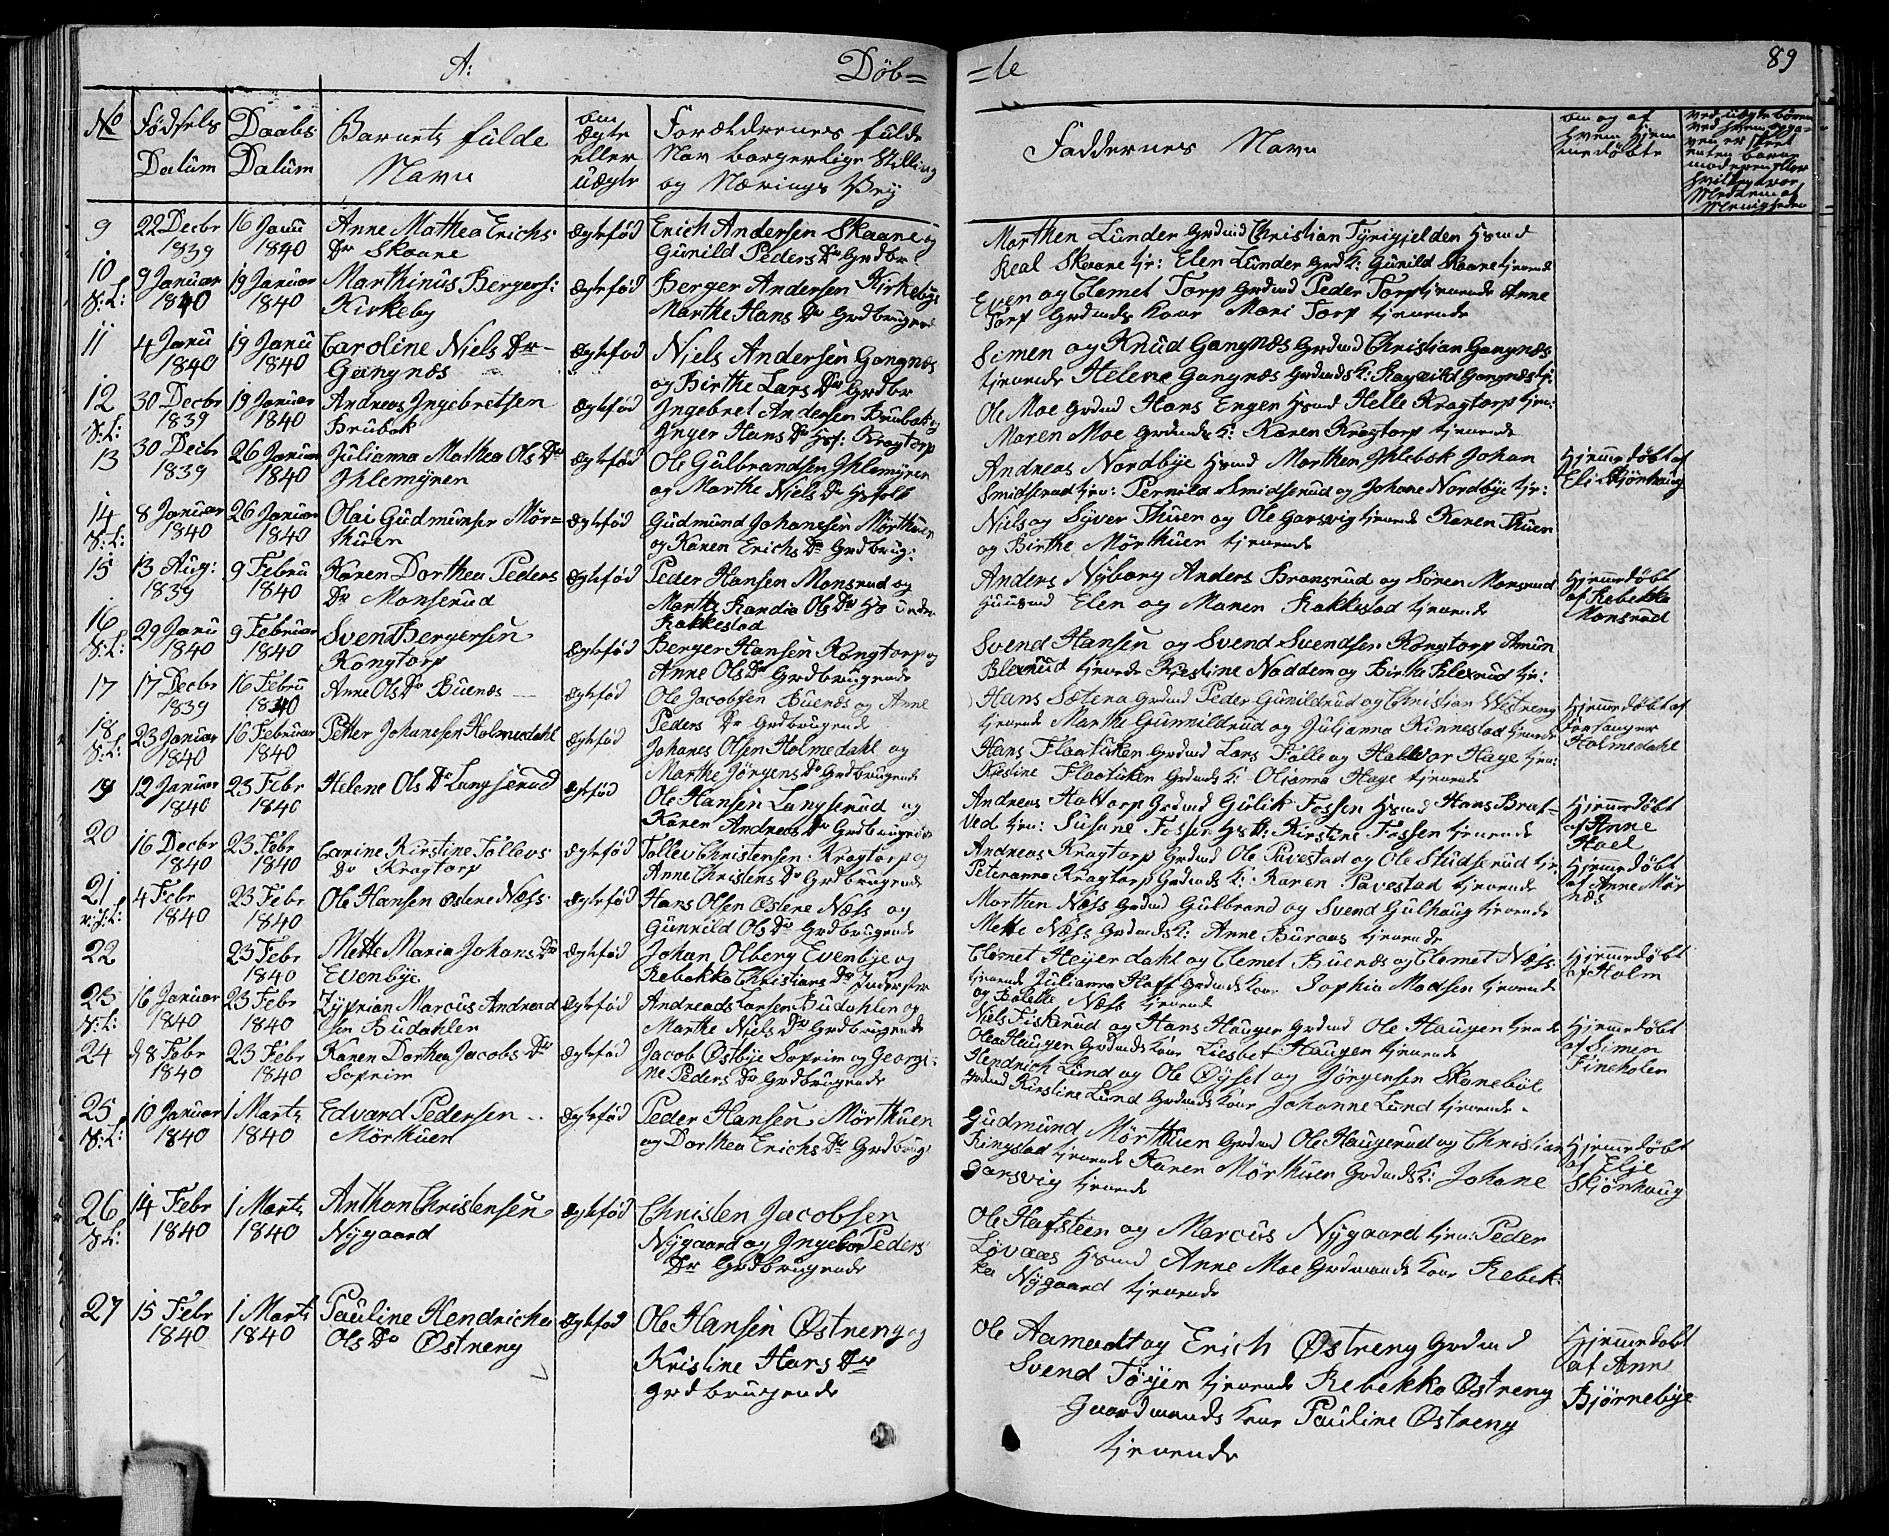 A: Døb=
=te 89
No Fødsels Datum Daabs Datum Barnets fulde Navn om ægte eller uægte Forældrenes fulde Nav borgerlige Stilling og Nærings Vey
Faddernes Navn om og af hvem hjemmedøbte
9 22 Decbr 1839 16 Janu 1840 Anne Mathea Erichs Dr Skaane Ægtefød Erich Andersen Skaane og Gunild Peders Dr Grdbr
Morthen Lunder Grdmd Christian Tyrigjelden Hsmd
Skaane tjr: Elen Lunder Grdk: Gunild Skaane tjenende
10 9 Januar 1840 19 Januar 1840 Marthinus Bergers: Kirkeby Ægtefød Berger Andersen Kirkeby og Marthe Hans Dr Grdbrugen
Even og Clemet Torp Grdmd Peder Torp tjenende Anne
Torp Grdmds Kone Mari Torp tjenende
11 4 Janu 1840 19 Janu 1840 Caroline Niels Dr Gangnæs Ægtefød Niels Andersen Gangnæs og Birthe Lars Dr Grdbr
Simen og Knud Gangnæs Grdmd Christian Gangnæs
tjenende Helene Gangnæs Grdmds K: Ragnild Gangnæs tj:
12 30 Decbr 1839 19 Januar 1840 Andreas Ingebretsen Brubak Ægtefød Ingebret Andersen Brubak og Inger Hans Dr Hsf: Kragtorp
Ole Moe Grdmd Hans Engen Hsmd Helle Kragtorp tjen:
Maren Moe Grdmds k: Karen Kragtorp tjenende
13 30 Decbr 1839 26 Januar 1840 Julianna Mathea Ols Dr Ihlemyren Ægtefød Ole Gulbrandsen Ihlemyren og Marthe Niels Dr Hsfolk
Andreas Nordbye Hsmd Morthen Ihlebek Johan
Smidserud tjen: Pernild Smidserud og Johane Nordbye tjr: Hjemmedøbt af Eli Skjønhaug
14 8 Januar 1840 26 Januar 1840 Olai Gudmunser Mørthuen Ægtefød Gudmund Johanesen Mørthuen og Karen Erichs Dr Grdbrug:
Niels og Syver Thuen og Ole Garsvig tjenende Karen Thuen
og Birthe Mørthuen tjenende
15 13 Aug: 1839 9 Febru 1840 Karen Dorthea Peders Dr Monserud Ægtefød Peder Hansen Monsrud og Marthe Ols Dr Hs under Rakkestad
Anders Nyborg Anders Bransrud og Søren Monsrud
Huusmd Elen og Maren Rakkestad tjenende Hjemmedøbt af Rebekka Monsrud
16 29 Janu 1840 9 Februar 1840 Svend Bergersen Kragtorp Ægtefød Berger Hansen Kragtorp og Anne Ols Dr Grdbrugende
Svend Hansen og Svend Svendsen Kragtorp Amun
Blexrud tjenende Kirstine Nadden og Birthe Blexrud tjr:
17 17 Decbr 1839 16 Febru 1840 Anne Ols Dr Buenæs Ægtefød Ole Jacobsen Buenæs og Anne Peders Dr Grdbrugende
Hans Sætera Grdmd Peder Gunildrud og Christian Westreng
tjenende Marthe Gunnildrud og Julianna Kinnestad tjenende Hjemmedøbt af Forsanger Holmedahl
18 23 Januar 1840 16 Februar 1840 Petter Johanesen Holmedahl Ægtefød Johanes Olsen Holmedahl og Marthe Jørgens Dr Grdbrugende
Hans Flaatuken Grdmd Lars Folle og Halvor Hage tjen:
Kirstine Flaatuken Grdmds K: Olianna Hage tjenende
19 12 Januar 1840 23 Febr 1840 Helene Ols Dr Langserud Ægtefød Ole Hansen Langserud og Karen Andreas Dr Grdbrugende
Andreas Haltorp Grdmd Gulik Fossen Hsmd Hans Bratved
tjen: Susane Fossen Hsk: Kirstine Fossen tjenende Hjemmedøbt af Anne Hoel
20 16 Decbr 1840 23 Febr 1840 Carine Kirstine Tollevs Dr Kragtorp Ægtefød Tollev Christensen Kragtorp og Anne Christens Dr Grdbrugende
Andreas Kragtorp Grdmd Ole Pavestad og Ole Studserud tjr:
Peteranna Kragtorp Grdmds K: Karen Pavestad tjenende Hjemmedøbt af Anne Mørnæs
21 4 Febr 1840 23 Febr 1840 Ole Hansen Østene Næss Ægtefød Hans Olsen Østene Næss og Gunnild Ols Dr Grdbrugende
Morthen Næss Grdmd Gulbrand og Svend Gulhaug tjenende
Mette Næss Grdmdsk: Anne Buraas tjenende
22 23 Febr 1840 Mette Maria Johans Dr Evenbye Ægtefød Johan Olberg Evenbye og Rebekka Christians Dr Inderster
Clemet Heyerdahl og Clemet Buenæs og Clemet Næss
tjenende Julianna Hoff Grdmds Kone Sophia Madsen tjenende
og Bolette Næss tjenende Hjemmedøbt af Holm
23 16 Januar 1840 23 Febr 1840 Zyprian Marcus Andreasen Budahlen Ægtefød Andreads Larsen Budahlen og Marthe Niels Dr Grdbrugende
Niels Fiskerud og Hans Haugen Grdmd Ole Haugen tjende
Olea Haugen Grdmds Kone Liesbet Haugen tjenende Hjemmedøbt af Simen Fineholen
24 8 Febr 1840 23 Febr 1840 Karen Dorthea Jacobs Dr Soprim Ægtefød Jacob Østbye Soprim og Georgine Peders Dr Grdbrugende
Hendrich Lund og Ole Øyset og Jørgensen Skanebøl
Grdmd Kirstine Lund Grdmds Kone Johanne Lund tjenende
25 10 Januar 1840 1 Marts 1840 Edvard Pedersen Mørthuen Ægtefød Peder Hansen Mørthuen og Dorthea Erichs Dr Grdbrug
Gudmund Mørthuen Grdmd Ole Haugerud og Christian
Ringstad tjenende Karen Mørthuen Grdmdsk: Johane
Garsvig tjenende Hjemmedøbt af Elje Skjønhaug
26 14 Febr 1840 1 Marts 1840 Anthon Christensen Nygaard Ægtefød Christen Jacobsen Nygaard og Ingebor Peders Dr Grdbrugende
Ole Hafsteen og Marcus Nygaard tjen: Peder
Løvaas Hsmd Anne Moe Grdmands Kone Rebek:
ka Nygaard tjenende
27 15 Febr 1840 1 Marts 1840 Pauline Hendricha Ols Dr Østreng Ægtefød Ole Hansen Østreng og Kristine Hans Dr grdbrugende
Ole Aamodt og Erich Østreng Grdmd
Svend Tøyen tjenende Rebekka Østreng
Gaardmands Kone Pauline Østreng
tjenende Hjemmedøbt af Anne Bjørnebye